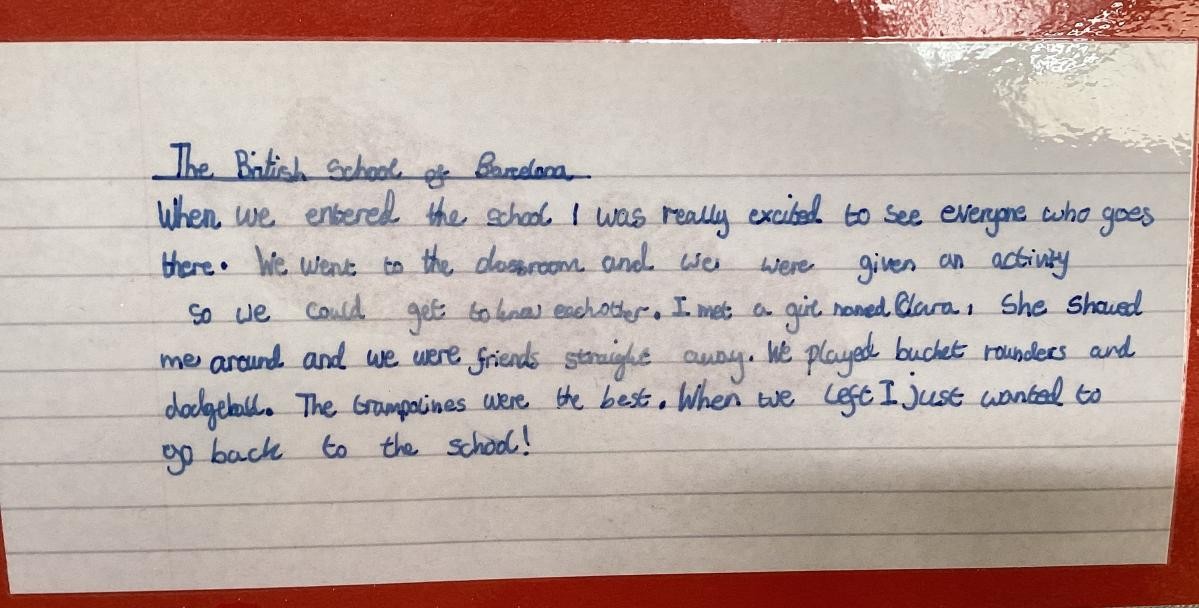 The British School of Barcelona
When we entered the school I was really excited to see everyone who goes
there. We went to the classroom and we were given an activity
so we could get to know eachother. I met a girl named Clara, She showed
me around and we were friends straight away. We played bucket rounders and
dodgeball. The trampolines were the best. When we left I just wanted to
go back to the school!